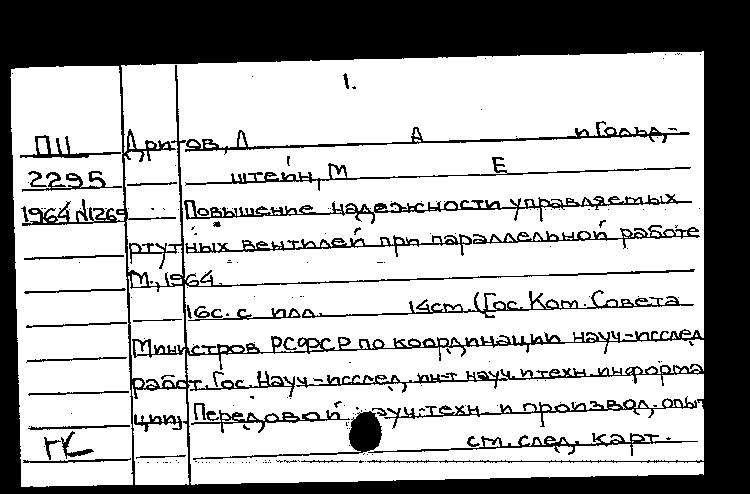 1.
П11 Дритов, Л А и Гольд-
2295 штейн, М Е
1964 N1269 Повышение надежности управляемых
ртутных вентилей при параллельной работе
М., 1964.
16с. с илл. 14см. (Гос. Ком. Совета
Министров РСФСР по координации науч-исслед
работ. Гос. Науч-исслед, ин-т науч. и техн. информа
ции). Передовой науч-техн. и производ. опыт
см. след. карт.